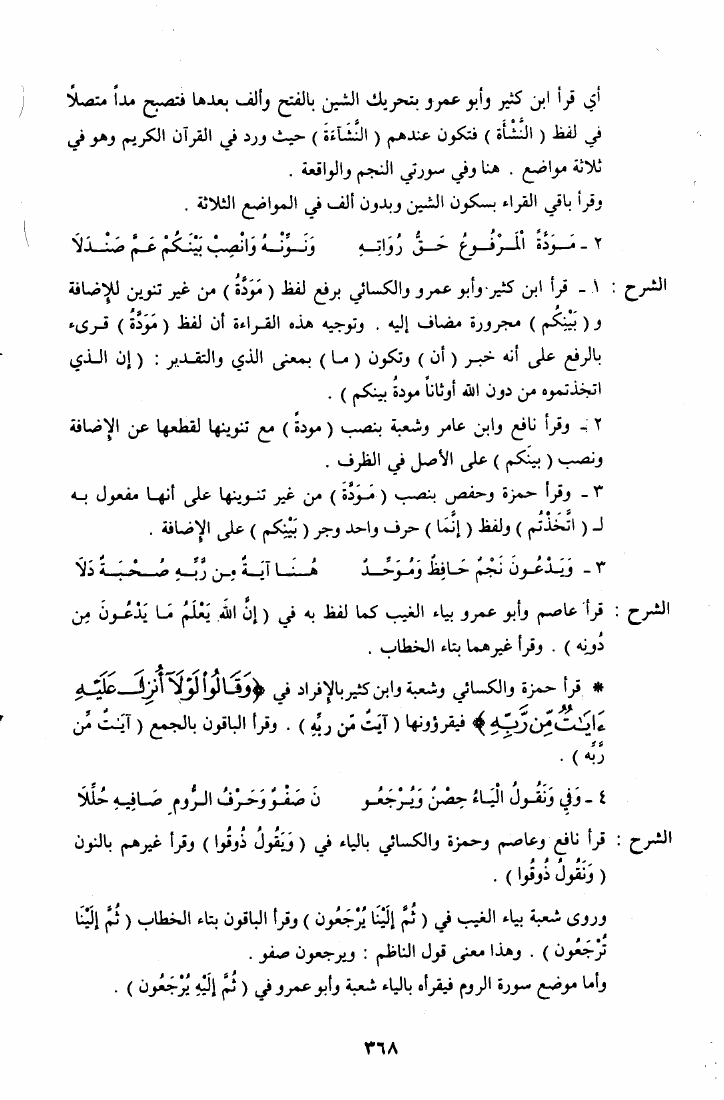 أي قرأ ابن كثير وأبو عمرو بتحريك الشين بالفتح وألف بعدها فتصبح مداً متصلاً
في لفظ ( النَّشْأَة ) فتكون عندهم ( النَّشَآءَةَ ) حيث ورد في القرآن الكريم وهو في
ثلاثة مواضع . هنا وفي سورتي النجم والواقعة .
وقرأ باقي القراء بسكون الشين وبدون ألف في المواضع الثلاثة .
٢ - مَـوَدَّةً الْمَـرْفُـوعُ حَـقُّ رُوَاتِـهِ وَنَـوِّنْـهُ وَانْصِبْ بَيْنَـكُمْ عَـمَّ صَنْـدَلَا
الشرح : ١ - قرأ ابن كثير وأبو عمرو والكسائي برفع لفظ ( مَوَدَّةُ ) من غير تنوين للإضافة
و ( بَيْنِكُم ) مجرورة مضاف إليه . وتوجيه هذه القراءة أن لفظ ( مَوَدَّةُ ) قرىء
بالرفع على أنه خبر ( أن ) وتكون ( ما ) بمعنى الذي والتقدير : ( إن الذي
اتخذتموه من دون الله أوثاناً مودةُ بينكم ) .
٢ - وقرأ نافع وابن عامر وشعبة بنصب ( مودةً ) مع تنوينها لقطعها عن الإضافة
ونصب ( بينَكم ) على الأصل في الظرف .
٣ - وقرأ حمزة وحفص بنصب ( مَوَدَّةَ ) من غير تنوينها على أنها مفعول به
لـ ( اتَّخَذْتُم ) ولفظ ( إنَّمَا ) حرف واحد وجر ( بَيْنِكم ) على الإضافة .
٣ - وَيَـدْعُـونَ نَجْمٌ حَـافِظٌ وَمُـوَحِّـدٌ هُـنَـا آيَـةٌ مِـن رَّبِّـهِ صُـحْبَـةٌ دَلَا
الشرح : قرأ عاصم وأبو عمرو بياء الغيب كما لفظ به في ( إنَّ الله يَعْلَمُ مَا يَدْعُونَ مِن
دُونِه ) . وقرأ غيرهما بتاء الخطاب .
* قرأ حمزة والكسائي وشعبة وابن كثير بالإفراد في ﴿وَقَالُوا۟ لَوْلَآ أُنزِلَ عَلَيْهِ
ءَايَـٰتٌ مِّن رَّبِّهِۦ﴾ فيقرؤونها ( آيَتٌ مّن ربِّه ) . وقرأ الباقون بالجمع ( آيَـٰتٌ مِّن
رَّبِّه ) .
٤ - وَفِي وَنَقُـولُ الْيَـاءُ حِصْنٌ وَيُـرْجَعُـو نَ صَفْـوٌ وَحَـرْفُ الـرُّومِ صَـافِيـهِ حُلِّلَا
الشرح : قرأ نافع وعاصم وحمزة والكسائي بالياء في ( وَيَقُولُ ذُوقُوا ) وقرأ غيرهم بالنون
( وَنَقُولُ ذُوقُوا ) .
وروى شعبة بياء الغيب في ( ثُمَّ إلَيْنَا يُرْجَعُون ) وقرأ الباقون بتاء الخطاب ( ثُمَّ إلَيْنَا
تُرْجَعُون ) . وهذا معنى قول الناظم : ويرجعون صفو .
وأما موضع سورة الروم فيقرأه بالياء شعبة وأبو عمرو في ( ثُمَّ إلَيْهِ يُرْجَعُون ) .
٣٦٨